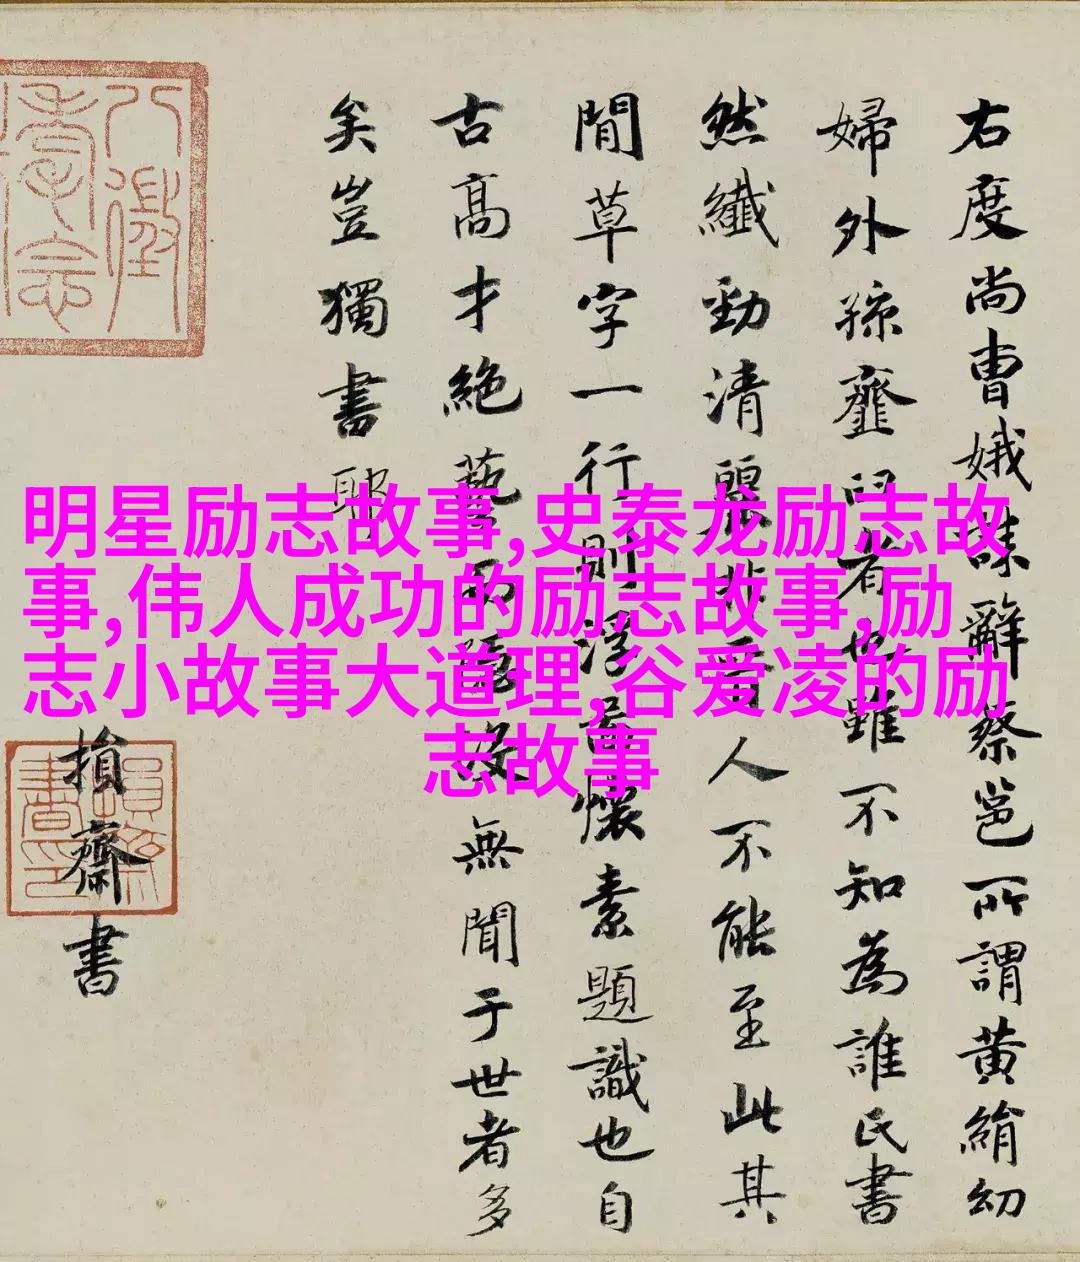 右度尚曹娥誄辭蔡邕所謂黃絹幼
婦外孫韲臼者也雖不知為誰氏書
然纖勁清麗非晉人不能至此其
閒草字一行則浮屠懷素題識也自
古高才絕藝而隱沒無聞于世者多
矣豈獨書耶
損齋書
明星励志故事,史泰龙励志故
事,伟人成功的励志故事,励
志小故事大道理,谷爱凌的励
志故事